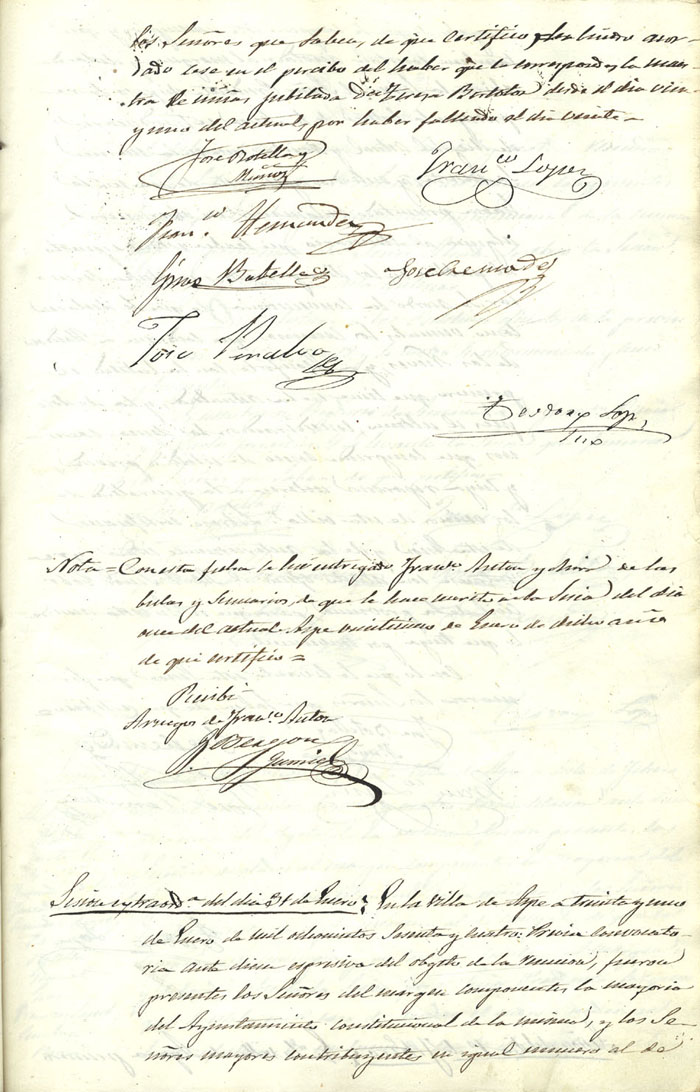 los Señores que saben, de que certifico, y han tambien acor-
dado cese en el percibo del haber que le corresponde, y la maes-
tra de niñas jubilada D.ª Teresa Bortolo desde el dia vein-
y uno del actual, por haber fallecido el dia veinte=
Jose Botella y
Muñoz
Fran.co Lopez
Fran.co Hernandez
Gines Botella
Jose Cremades
Jose Peralba
Lop
Nota = Con esta fecha se ha entregado Fran.co Anton y de las
bulas y sumarios, de que se hace merito en la del dia
once del actual. Aspe veintiseis de Enero de dicho año
de que certifico=
Recibí
Aruegos de Fran.co Anton
Sesion extraord.ª del dia 31 de Enero; En la villa de Aspe a treinta y uno
de Enero de mil ochocientos sesenta y cuatro: Previa convocato-
ria ante diem espresiva del objeto de la reunion, fueron
presentes los Señores del margen componentes la mayoria
del Ayuntamiento constitucional de la misma, y los Se-
ñores mayores contribuyentes en igual numero al de